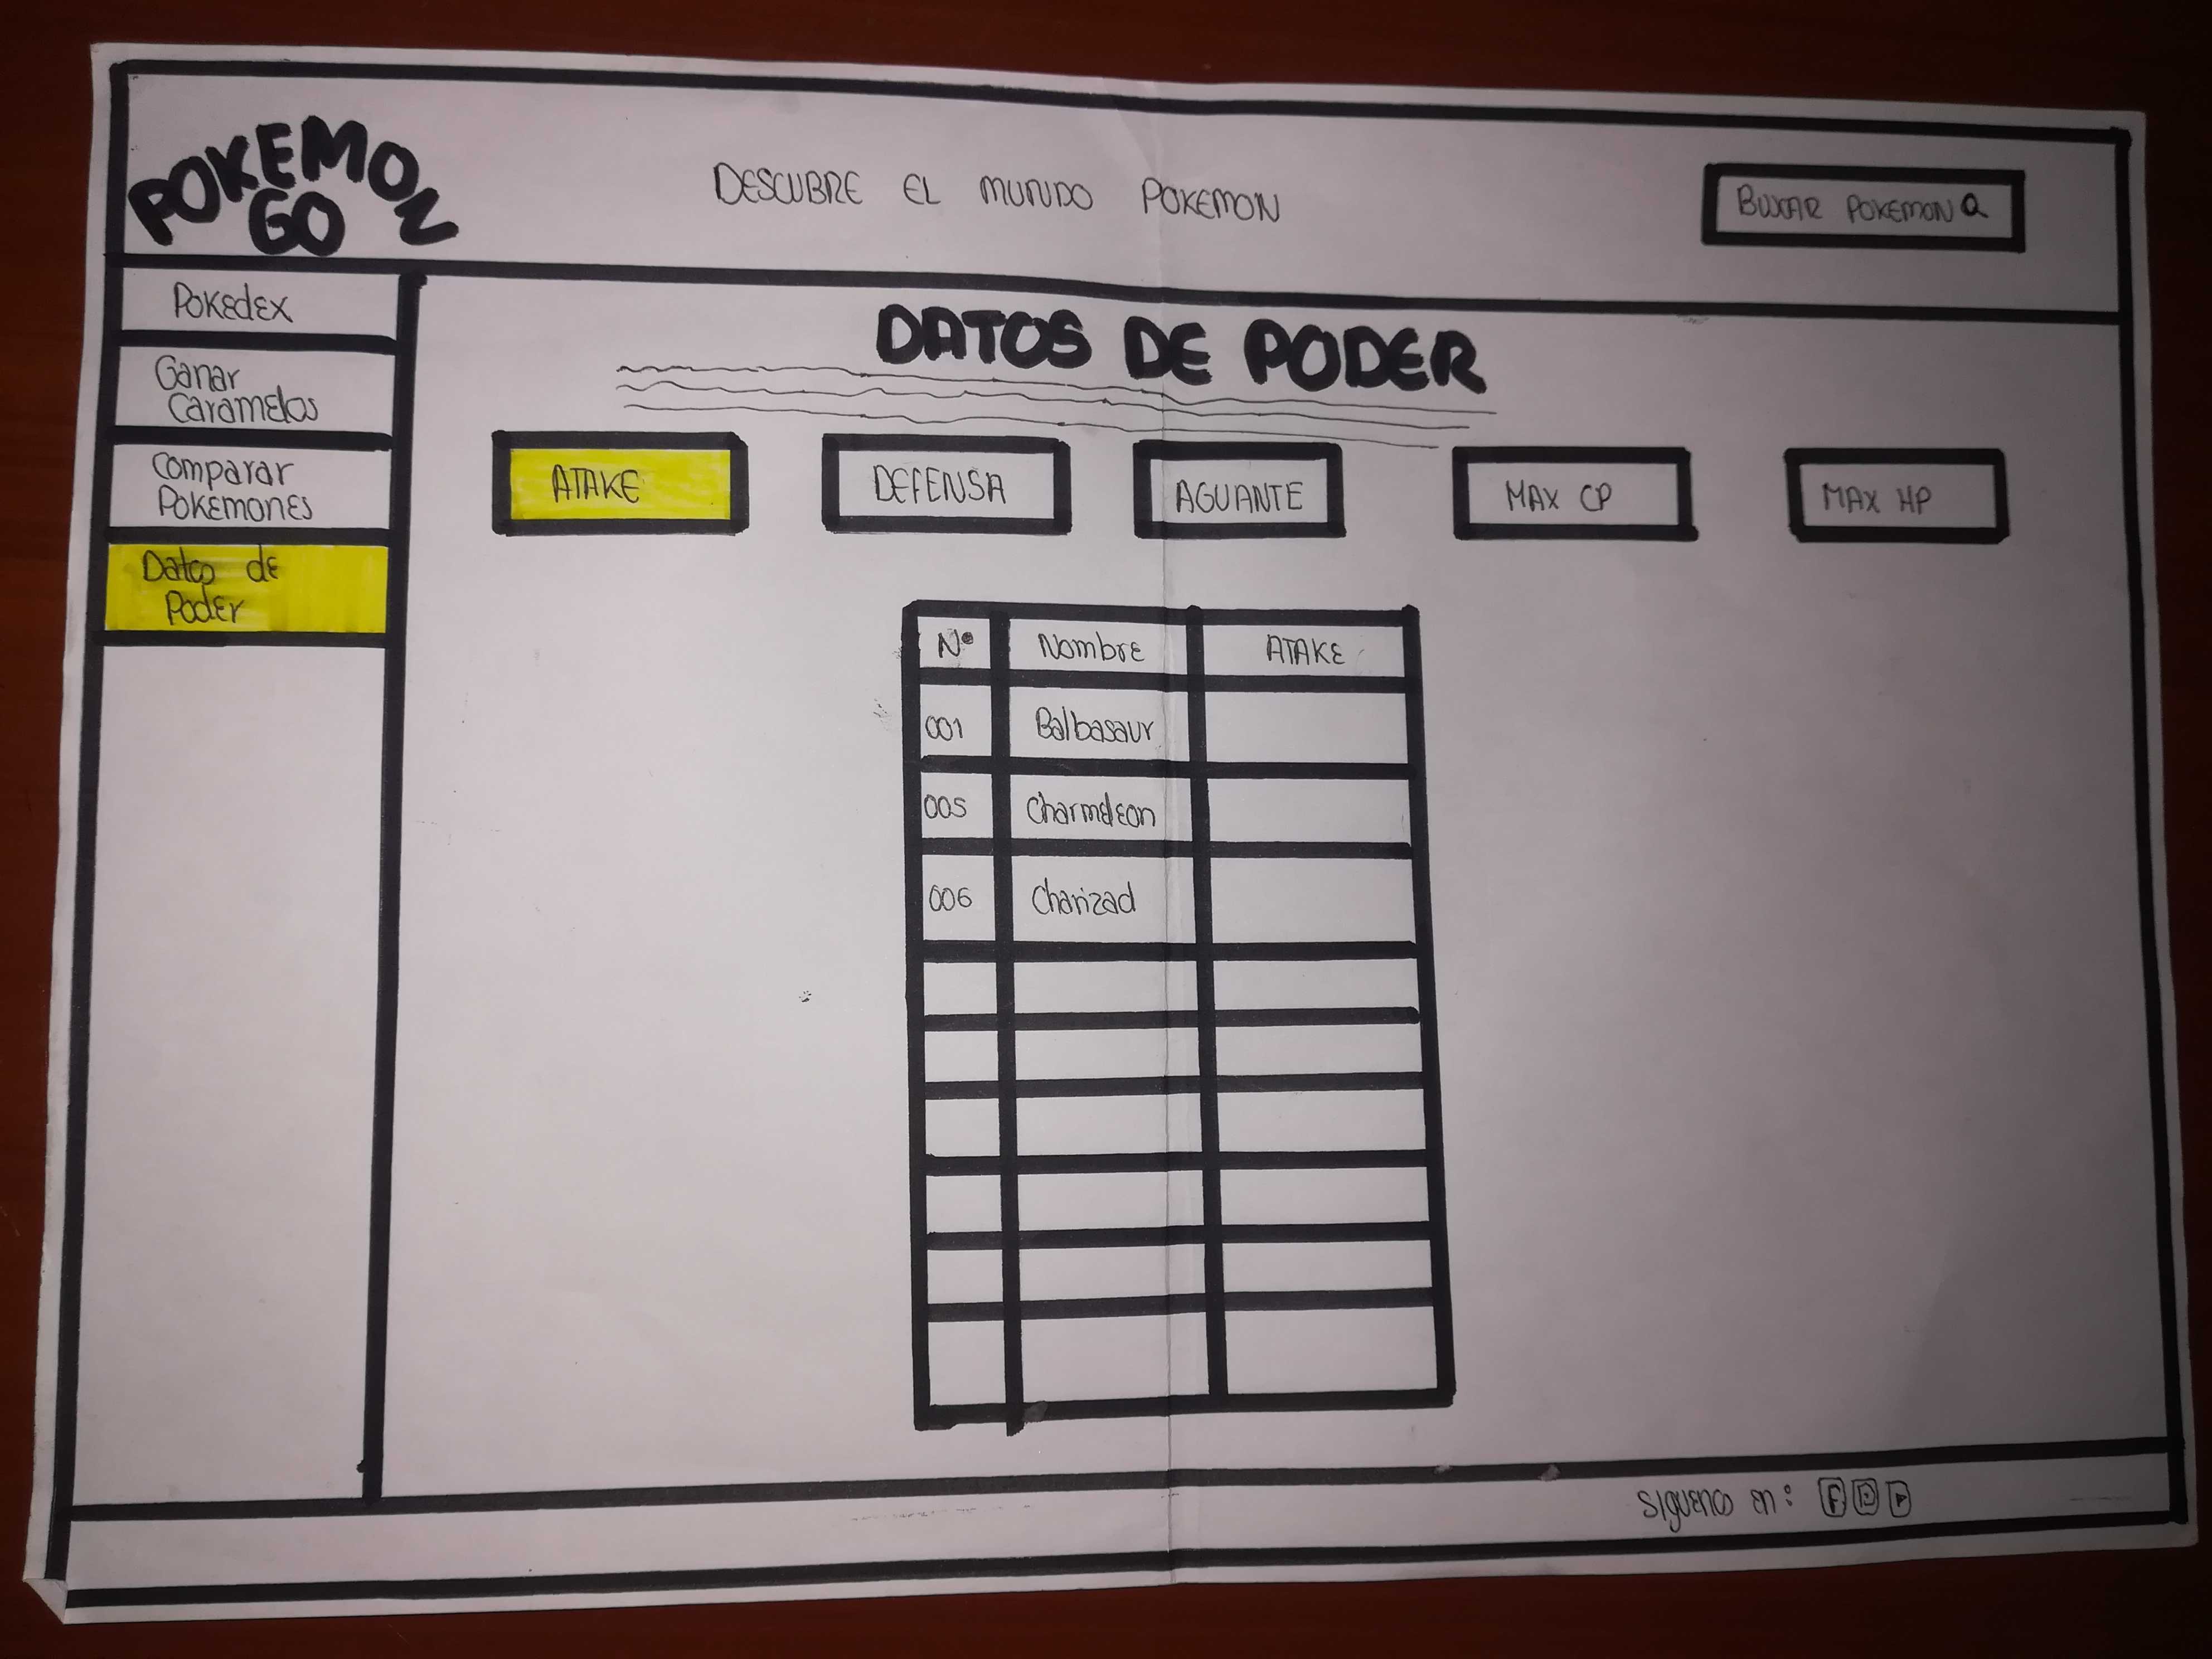 POKEMON
GO
DESCUBRE EL MUNDO POKEMON
BUSCAR POKEMON
Pokedex
Ganar
Caramelos
Comparar
Pokemones
Datos de
Poder
DATOS DE PODER
ATAKE
DEFENSA
AGUANTE
MAX CP
MAX HP
N° Nombre ATAKE
001 Balbasaur
005 Charmeleon
006 Charizad
SIGUENOS en: